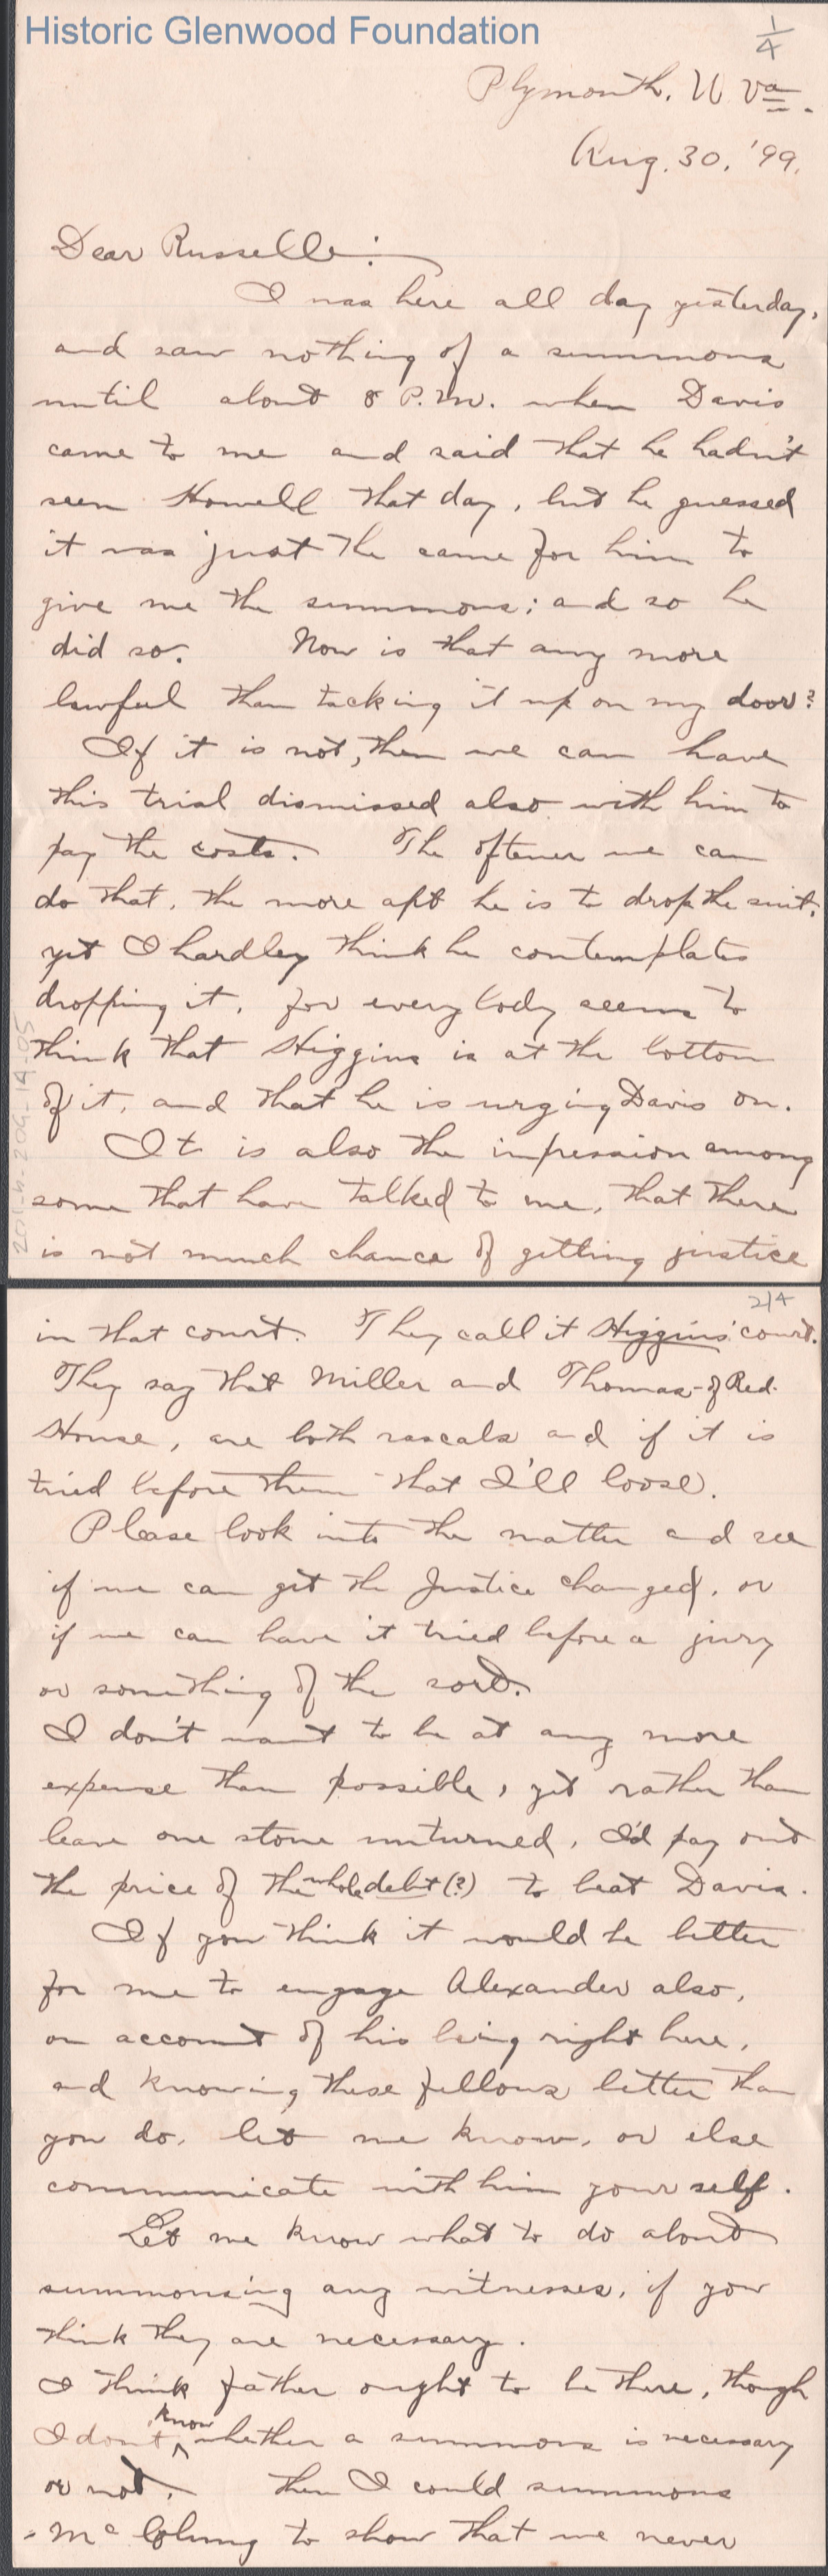 Historic Glenwood Foundation
1/4
Plymouth, W. Va.
Aug. 30, '99.
Dear Russelle:
I was here all day yesterday,
and saw nothing of a summons
until about 8 P.M. when Davis
came to me and said that he hadn't
seen Howell that day, but he guessed
it was just the same for him to
give me the summons; and so he
did so. Now is that any more
lawful than tacking it up on my door?
If it is not, then we can have
this trial dismissed also with him to
pay the costs. The oftener we can
do that, the more apt he is to drop the suit,
yet I hardley think he contemplates
dropping it, for everybody seems to
think that Higgins is at the bottom
of it, and that he is urging Davis on.
It is also the impression among
some that have talked to me, that there
is not much chance of getting justice
2/4
in that court. They call it Higgins' court.
They say that Miller and Thomas-of Red
House, are both rascals and if it is
tried before them that I'll loose.
Please look into the matter and see
if we can get the Justice changed, or
if we can have it tried before a jury
or something of the sort.
I don't want to be at any more
expense than possible, yet rather than
leave one stone unturned, I'd pay out
the price of the whole debt (?) to beat Davis.
If you think it would be better
for me to engage Alexander also,
on account of his being right here,
and knowing these fellows better than
you do, let me know, or else
communicate with him yourself.
Let me know what to do about
summonsing any witnesses, if you
think they are necessary.
I think father ought to be there, though
I don't know whether a summons is necessary
or not. Then I could summons
Mc to show that we never